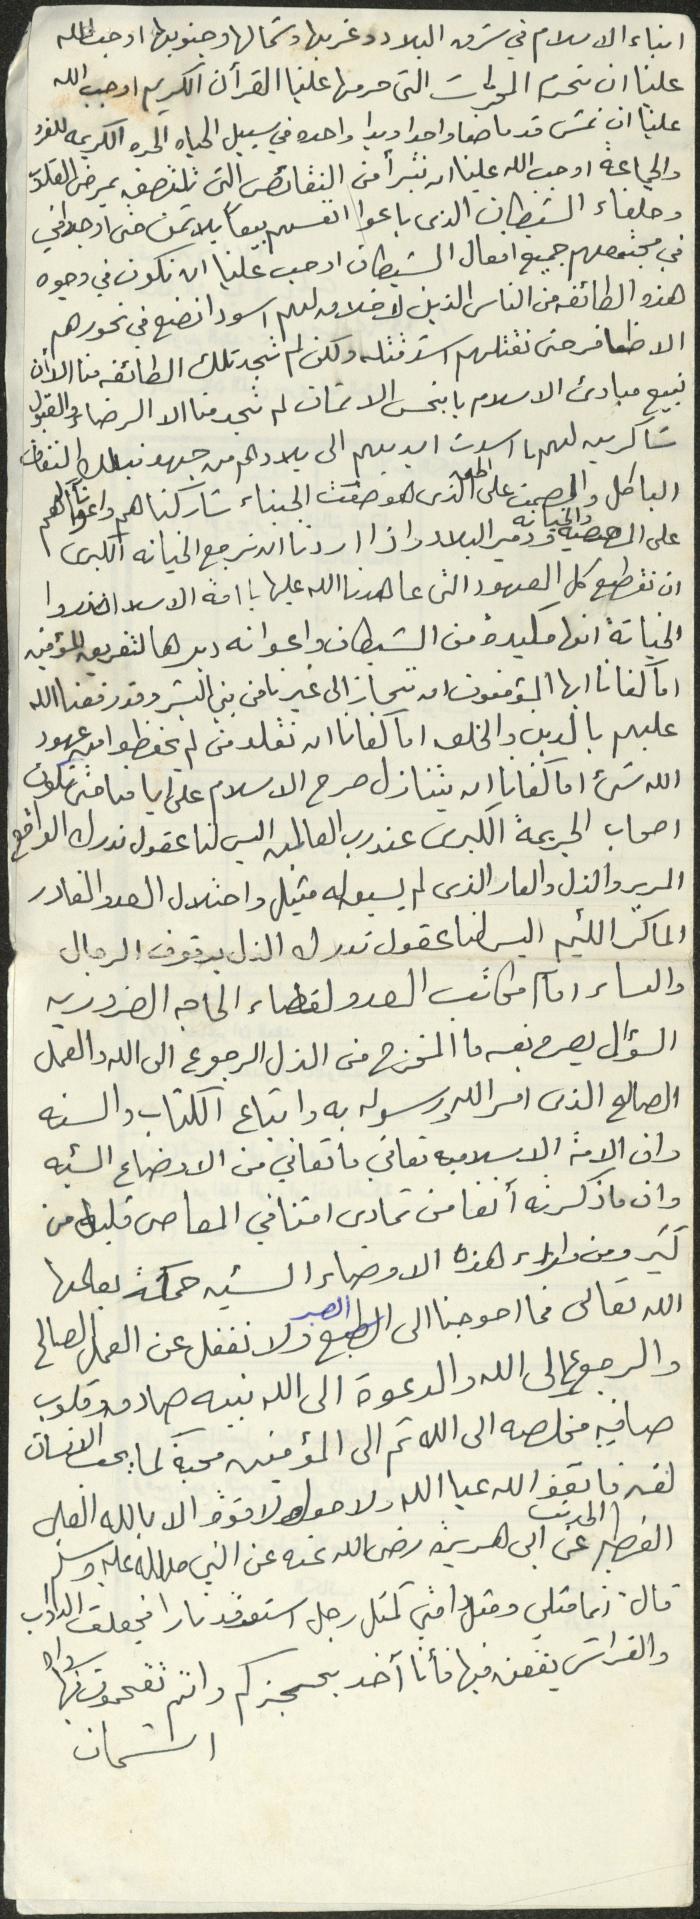 ابناء الاسلام في شرق البلاد وغربها وشمالها وجنوبها اوجب الله
علينا ان نحرم المحرمات التي حرمها علينا القرآن الكريم اوجب الله
علينا ان نمشي قدما صفا واحدا ويدا واحده في سبيل الحياه الحره الكريمه للفرد
والجماعة اوجب الله علينا ان نتبرأ من النقائص التي تلتصق بمرضى القلوب
وحلفاء الشيطان الذي باعوا انفسهم بيعا بلا ثمن حتى اوجدوا في
في مجتمعهم جميع افعال الشيطان اوجب علينا ان نكون في وجوه
هذه الطائفه من الناس الذين لا خلاق لهم اسودا نضع في نحورهم
الاظافر حتى نقتلهم اشد قتله ولكن لم تجد تلك الطائفه منا الا ان
نبيع مبادئ الاسلام بابخس الاثمان لم تجد منا الا الرضاء والقبول
شاكرين لهم ما اسدت ايديهم الى بلادهم من جهود بتلك النقائض
الباطل والصمت على الظلم الذي هو صفت الجبناء شاركناهم واعوناهم
على المعصية والخيانه ودمير البلاد واذا اردنا ان نرجع الخيانه الكبرى
ان نقطع كل العهود التي عاهدنا الله عليها يا امة الاسلام احذروا
الخيانة انها مكيدة من الشيطان واعوانه دبرها لتفريق المؤمنين
اما كفانا ايها المؤمنون ان ننحاز الى غيرنا من بني البشر وقد رفعنا الله
عليهم بالدين والخلق اما كفانا ان نقلد من لم يحفظوا من عهود
الله شئ اما كفانا ان يتنازل صرح الاسلام على ايامنا حتى نكون
اصحاب الجريمة الكبرى عند رب العالمين اليس لنا عقول ندرك الواقع
المرير والذل والعار الذي لم يسبق له مثيل واحتلال العدو الغادر
الماكر اللئيم اليس لنا عقول تدرك الذل بوقوف الرجال
والنساء امام مكاتب العدو لقضاء الحاجه الضروريه
السؤال يطرح نفسه ما المخرج من الذل الرجوع الى الله والعمل
الصالح الذي امر الله ورسوله به واتباع الكتاب والسنه
وان الامة الاسلاميه تعاني ما تعاني من الاوضاع السئيه
وان ما ذكرته أنفا من تمادى امتنا في المعاصي قليل من
كثير ومن وراء هذه الاوضاء السئيه حكمة يعلمها
الله تعالى فما احوجنا الى الصبر ولا نغفل عن العمل الصالح
والرجوع الى الله والدعوة الى الله بنيه صادقه وقلوب
صافيه مخلصه الى الله ثم الى المؤمنين محبة كما يحب الانسان
لنفسه فاتقوا الله عبا الله ولا حول ولا قوة الا بالله العلي
العظيم الحديث عن ابي هريرة رضي الله عنه عن النبي صلى الله عليه وسلم
قال: انما مثلي ومثل امتي كمثل رجل استوقد نارا فجعلت الدواب
والفراش يقعن فيها فأنا آخذ بحجزكم وانتم تقحمون فيها رواه
الشيخان